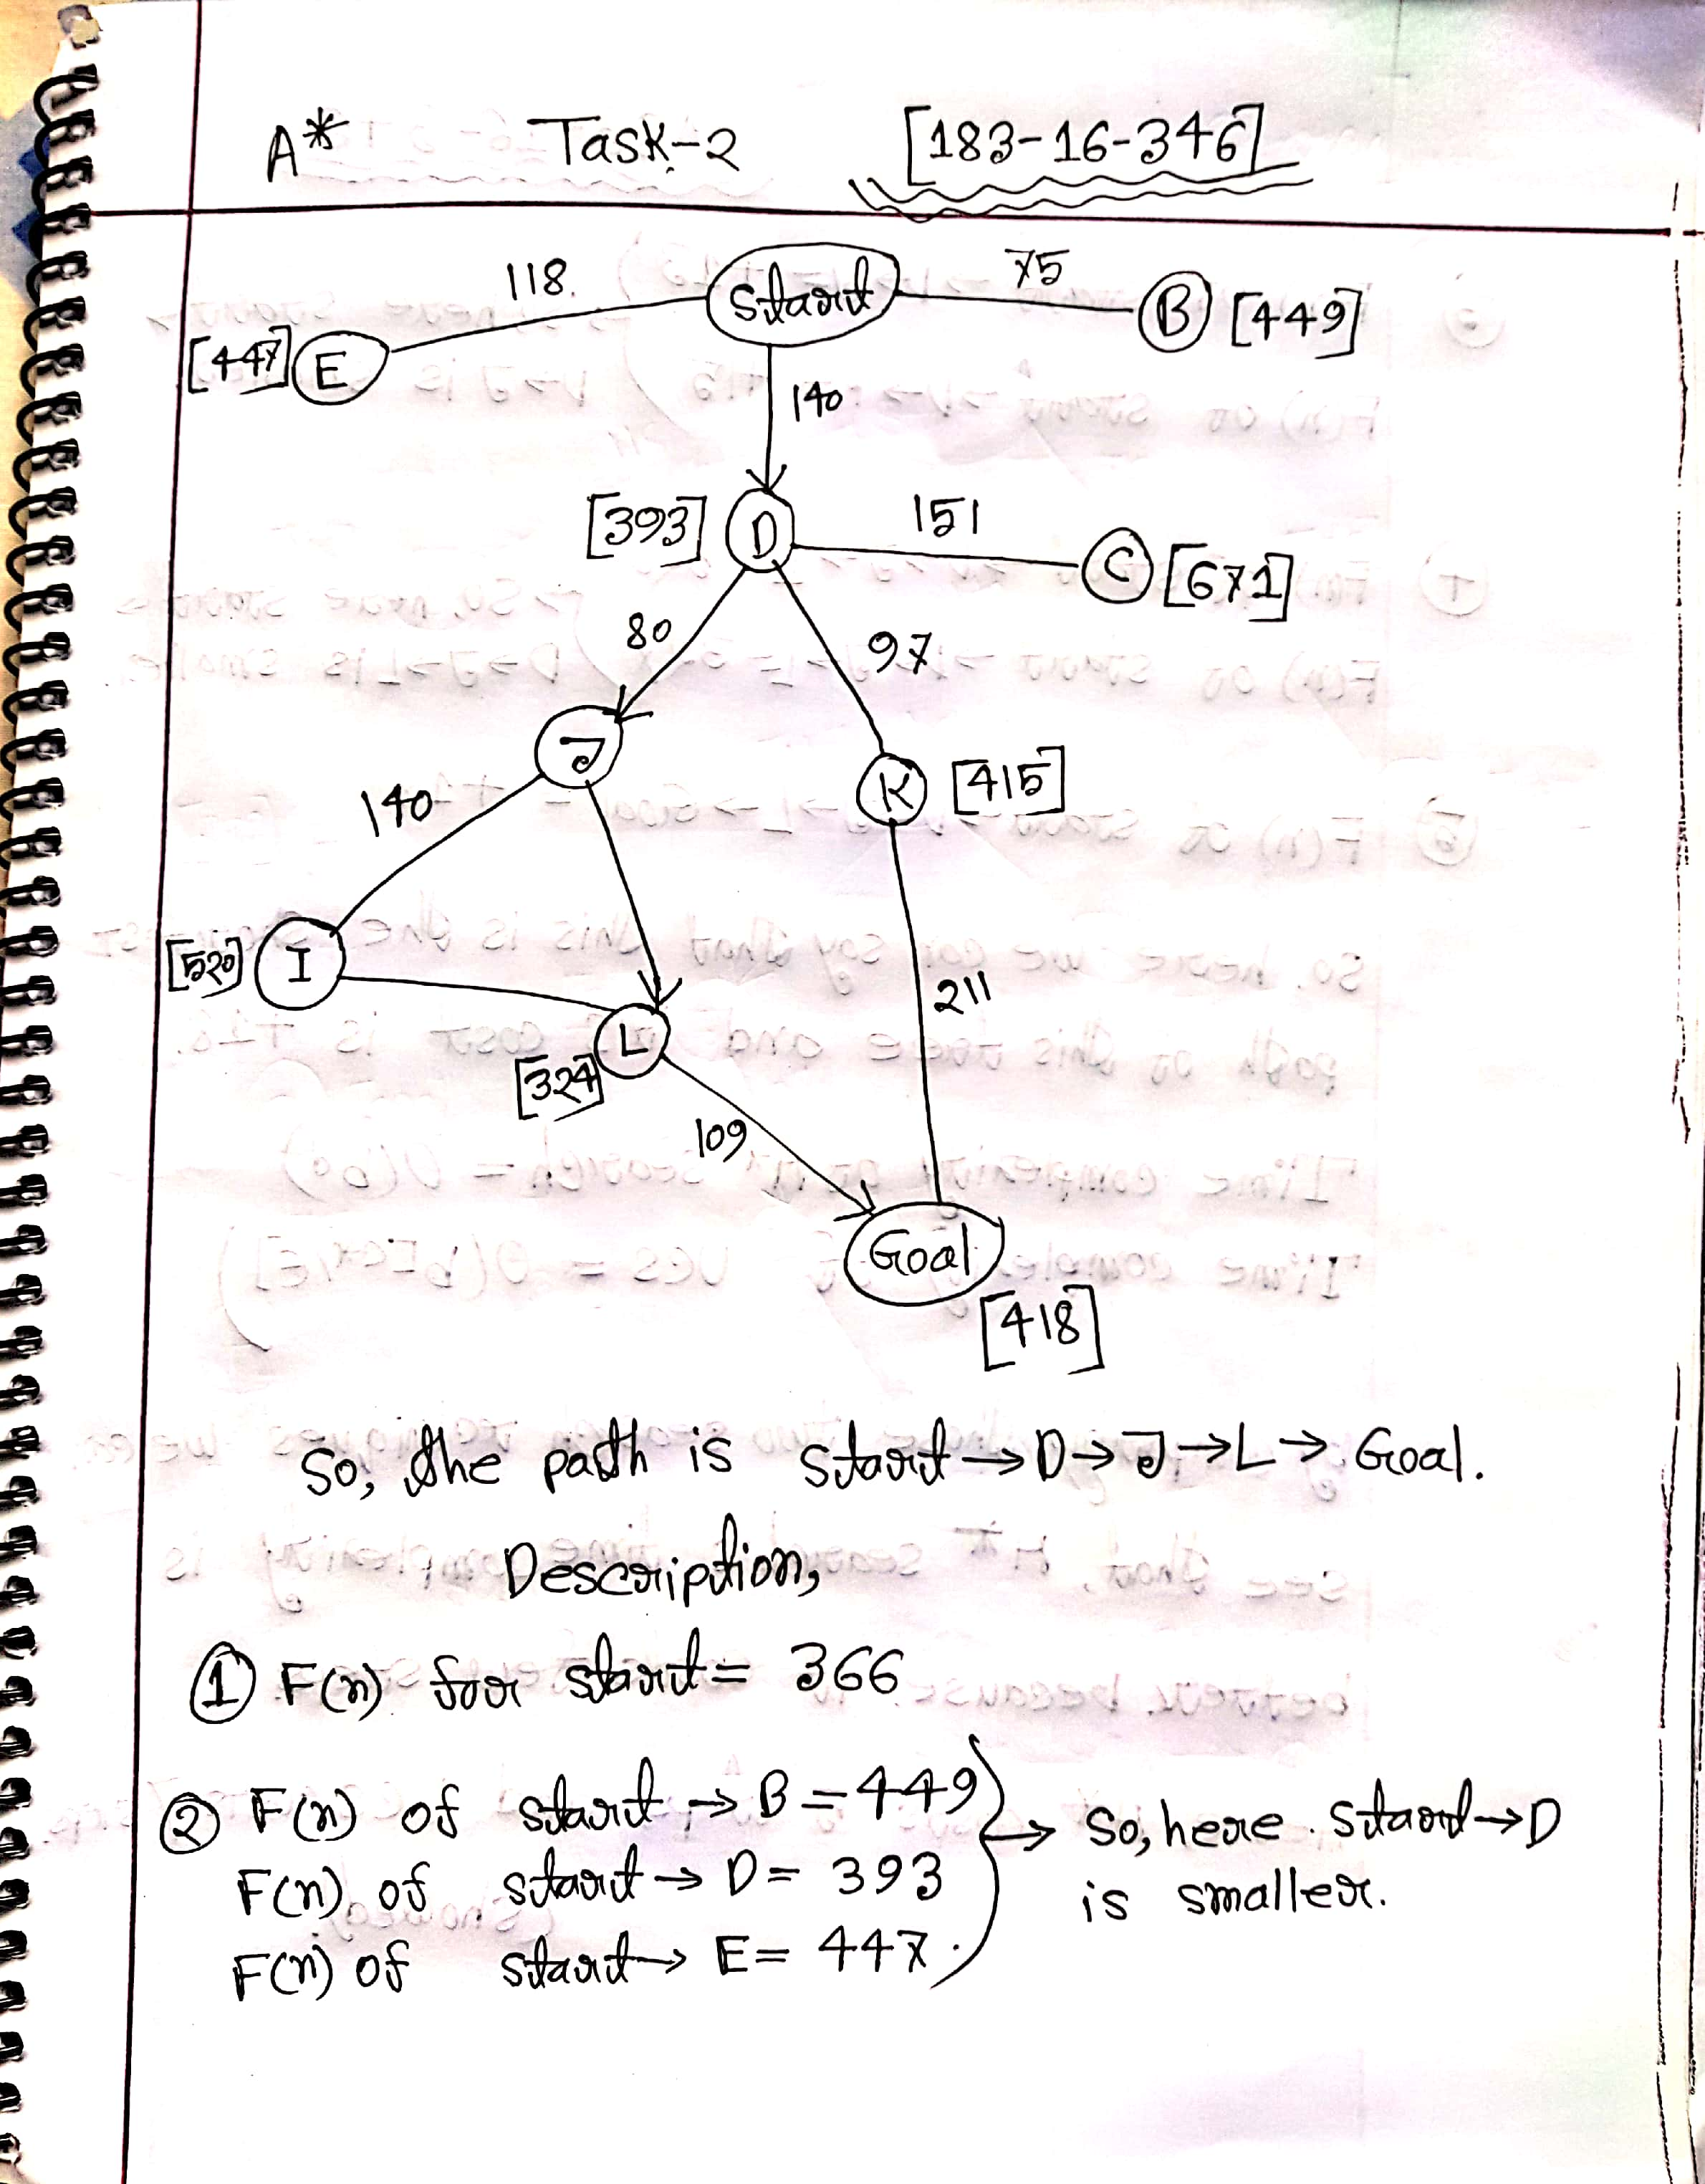 A* Task-2 [183-16-346]
118. Start 75
[447] E B [449]
140
[393] D 151
C [671]
80 97
J
140 K [415]
[520] I
211
L
[324]
109
Goal
[418]
So, the path is Start → D → J → L → Goal.
Description,
① F(n) for start = 366
② F(n) of start → B = 449
F(n) of start → D = 393
F(n) of start → E = 447.
→ So, here. Start → D
is smaller.